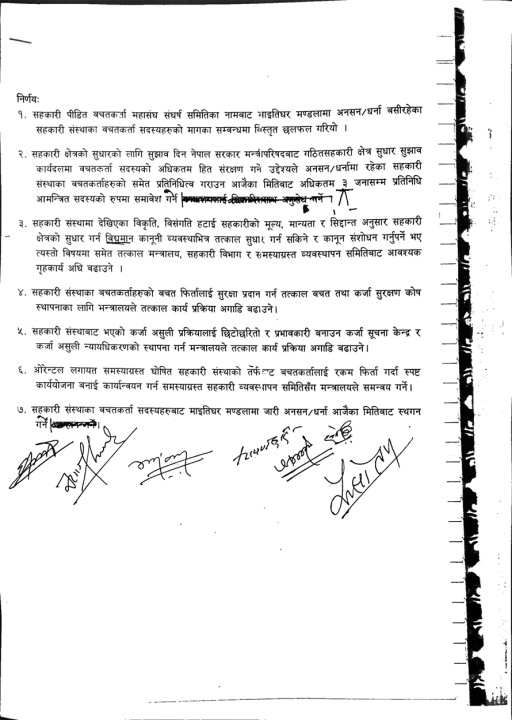 निर्णय:
१. सहकारी पीडित बचतकर्ता महासंघ संघर्ष समितिका नामबाट भाइतिघर मण्डलामा अनसन/धर्ना बसीरहेका
सहकारी संस्थाका बचतकर्ता सदस्यहरुको मागका सम्बन्धमा विस्तृत छलफल गरियो ।
२. सहकारी क्षेत्रको सुधारको लागि सुझाव दिन नेपाल सरकार मन्त्रीपरिषदबाट गठितसहकारी क्षेत्र सुधार सुझाव
कार्यदलमा बचतकर्ता सदस्यको अधिकतम हित संरक्षण गने उद्देश्यले अनसन/धर्नामा रहेका सहकारी
संस्थाका बचतकर्ताहरुको समेत प्रतिनिधित्व गराउन आजैका मितिबाट अधिकतम ३ जनासम्म प्रतिनिधि
आमन्त्रित सदस्यको रुपमा समावेश गर्ने
३. सहकारी संस्थामा देखिएका विकृति, विसंगति हटाई सहकारीको मूल्य, मान्यता र सिद्दान्त अनुसार सहकारी
क्षेत्रको सुधार गर्न विद्यमान कानूनी व्यवस्थाभित्र तत्काल सुधार गर्न सकिने र कानून संशोधन गर्नुपर्ने भए
त्यस्तो विषयमा समेत तत्काल मन्त्रालय, सहकारी विभाग र समस्याग्रस्त व्यवस्थापन समितिबाट आवश्यक
गृहकार्य अघि बढाउने ।
४. सहकारी संस्थाका बचतकर्ताहरुको बचत फिर्तालाई सुरक्षा प्रदान गर्न तत्काल बचत तथा कर्जा सुरक्षण कोष
स्थापनाका लागि मन्त्रालयले तत्काल कार्य प्रक्रिया अगाडि बढाउने।
५. सहकारी संस्थाबाट भएको कर्जा असुली प्रक्रियालाई छिटोछरितो र प्रभावकारी बनाउन कर्जा सूचना केन्द्र र
कर्जा असुली न्यायधिकरणको स्थापना गर्न मन्त्रालयले तत्काल कार्य प्रक्रिया अगाडि बढाउने।
६. ओरेन्टल लगायत समस्याग्रस्त घोषित सहकारी संस्थाको तर्फबाट बचतकर्तालाई रकम फिर्ता गर्दा स्पष्ट
कार्ययोजना बनाई कार्यान्वयन गर्न समस्याग्रस्त सहकारी व्यवस्थापन समितिसँग मन्त्रालयले समन्वय गर्ने।
७. सहकारी संस्थाका बचतकर्ता सदस्यहरुबाट माइतिघर मण्डलामा जारी अनसन/धर्ना आजैका मितिबाट स्थगन
गर्ने